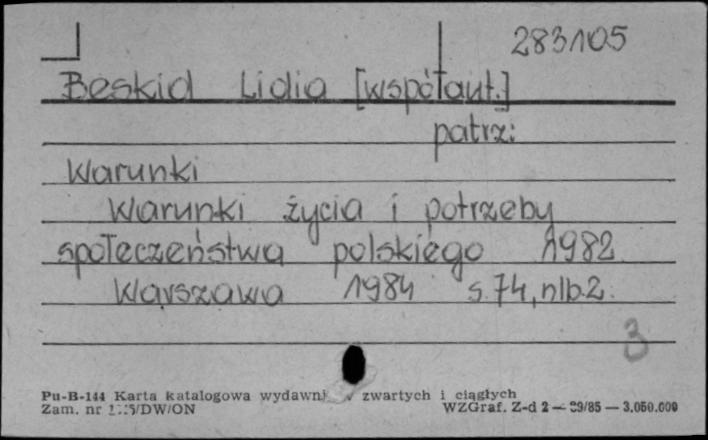 283105
Beskid Lidia [współaut.]
patrz:
Warunki
Warunki życia i potrzeby
społeczeństwa polskiego 1982
Warszawa 1984 s. 74, nlb. 2.
3
Pu-B-144 Karta katalogowa wydawn zwartych i ciągłych
Zam. nr /DW/ON WZGraf. Z-d 2 — /85 — 3.050.000